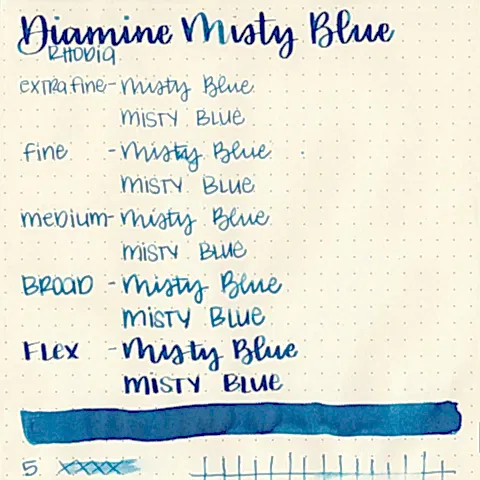 Diamine Misty Blue
RHODIA
extra fine - Misty Blue
MISTY BLUE
fine - Misty Blue
MISTY BLUE
medium - Misty Blue
MISTY BLUE
BROAD - Misty Blue
MISTY BLUE
FLEX - Misty Blue
MISTY BLUE
5. xxxx